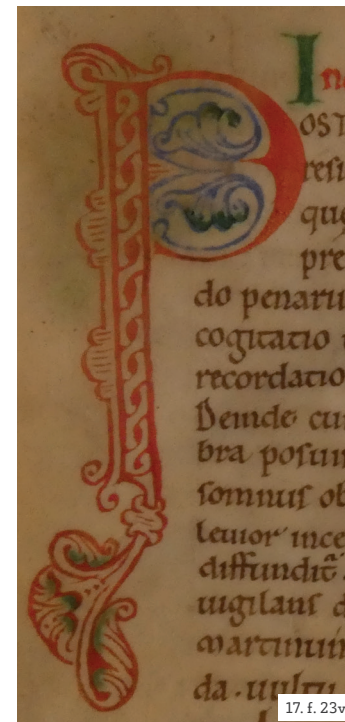 In
POST
resu
que
pre
do penaru
cogitatio
recordatio
Deinde cu
bra posui
somnus ob
leuior ince
diffundit̃
uigilans d
martinum
da. uultu
17. f. 23v